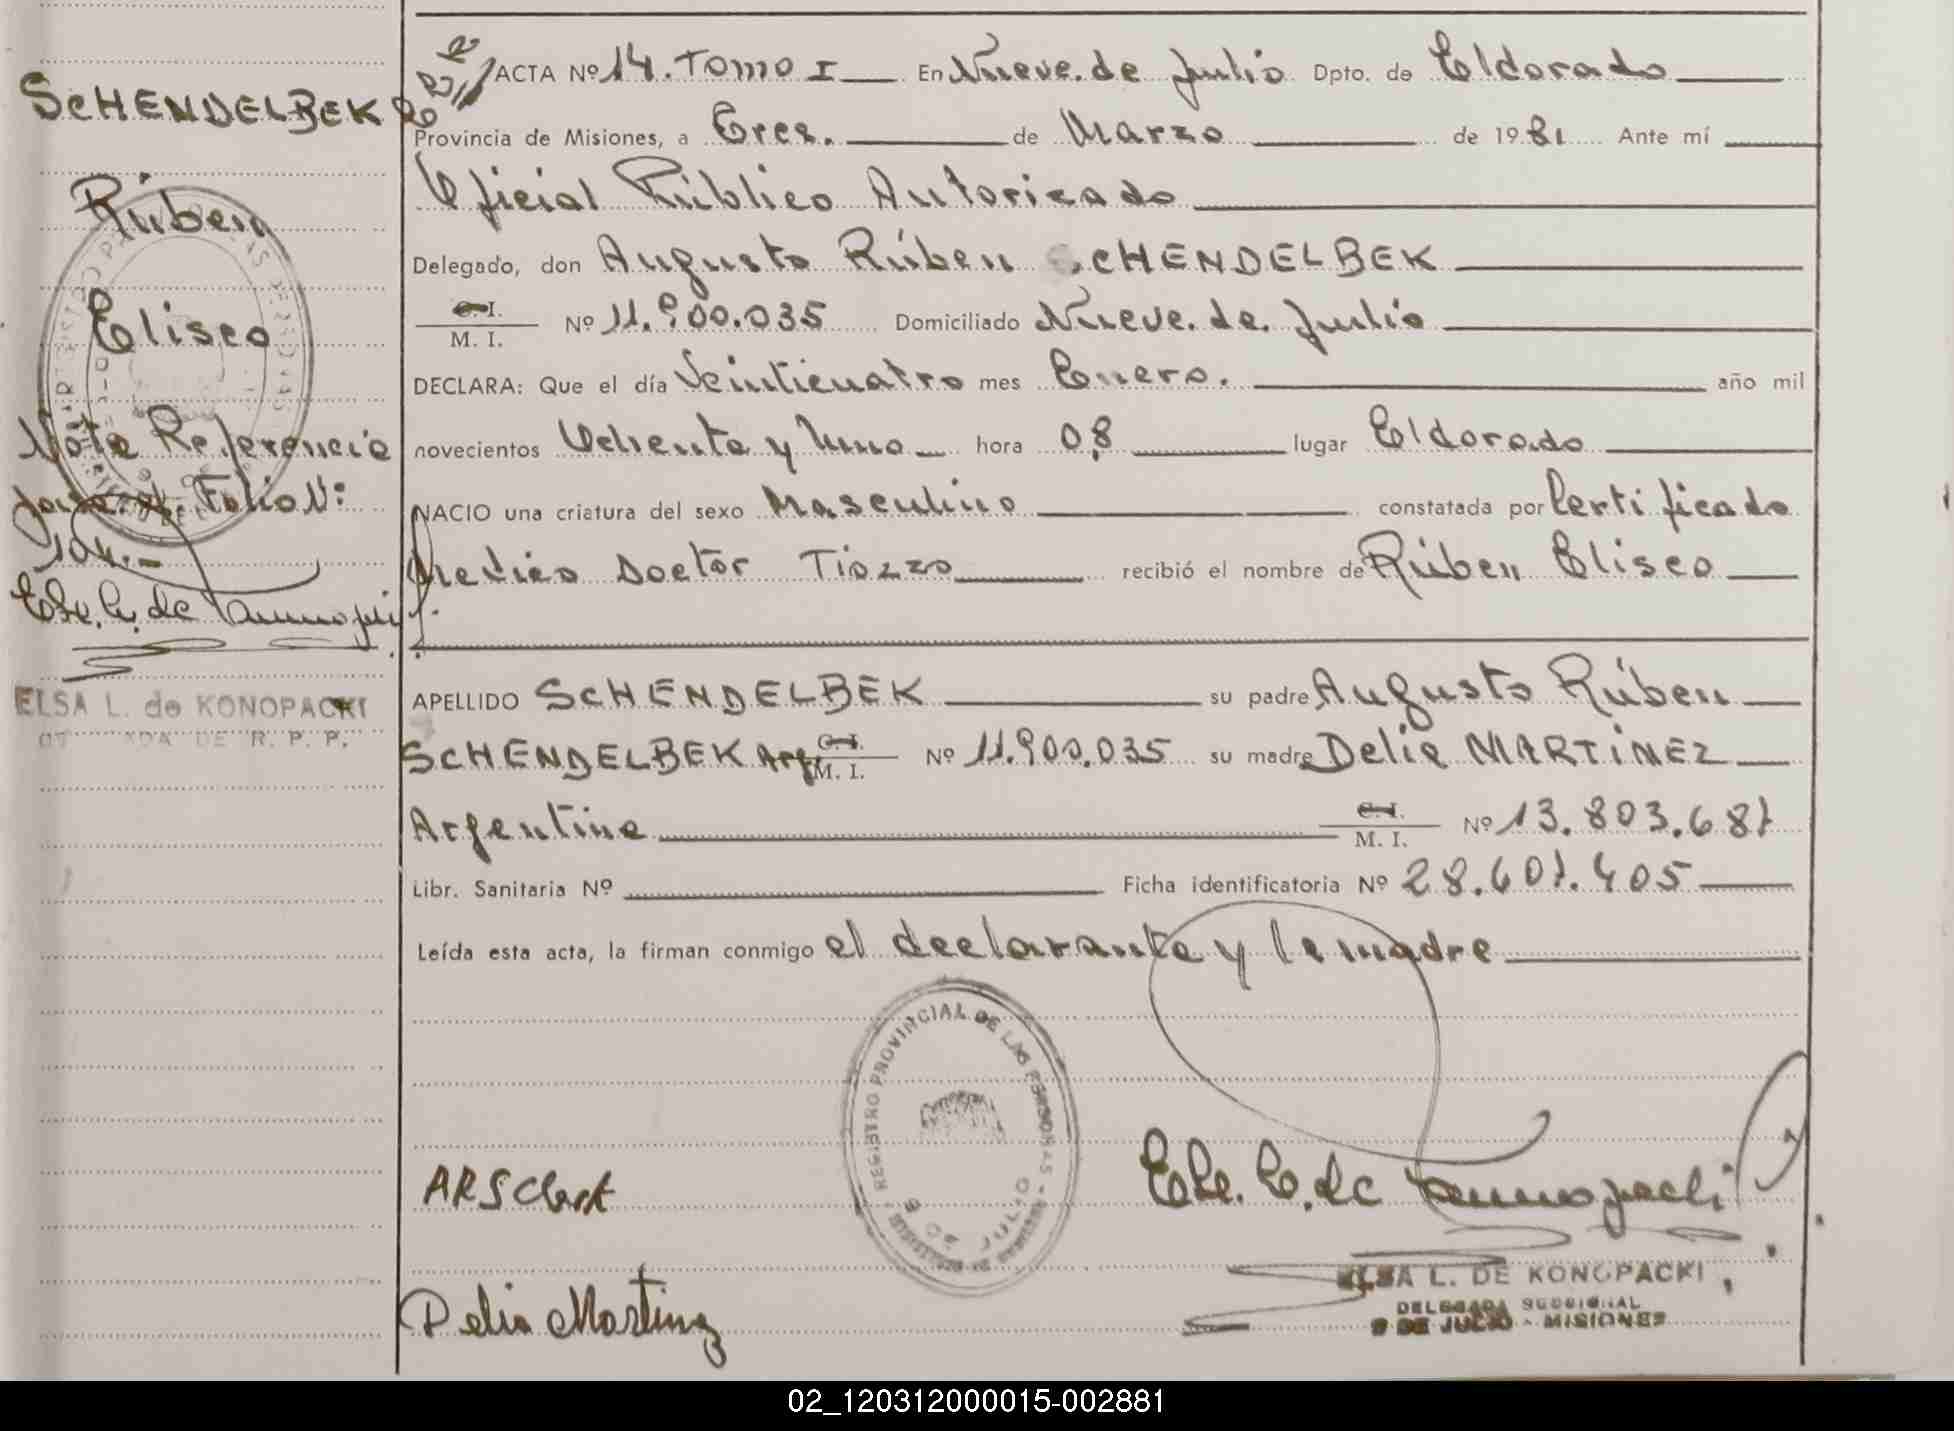 SCHENDELBEK
Rúben
Eliseo
Nota Referencia
Folio Nº
104.-
ELSA L. de KONOPACKI
DE R. P. P.
ACTA Nº 14. Tomo I En Nueve de Julio Dpto. de Eldorado
Provincia de Misiones, a Tres. de Marzo de 1981 Ante mí
Oficial Público Autorizado
Delegado, don Augusto Rúben SCHENDELBEK
C. I.
M. I. Nº 11.900.035 Domiciliado Nueve de Julio
DECLARA: Que el día Veinticuatro mes Enero. año mil
novecientos Ochenta y Uno hora 08 lugar Eldorado
NACIO una criatura del sexo Masculino constatada por Certificado
Medico Doctor Tiozzo recibió el nombre de Rúben Eliseo
APELLIDO SCHENDELBEK su padre Augusto Rúben
SCHENDELBEK Arg. C. I. M. I. Nº 11.900.035 su madre Delia MARTINEZ
Argentina C. I. M. I. Nº 13.803.687
Libr. Sanitaria Nº Ficha identificatoria Nº 28.607.405
Leída esta acta, la firman conmigo el declarante y la madre
REGISTRO PROVINCIAL DE LAS PERSONAS
9 DE JULIO
Delia Martinez
ELSA L. DE KONOPACKI
DELEGADA SECCIONAL
9 DE JULIO - MISIONES
02_120312000015-002881